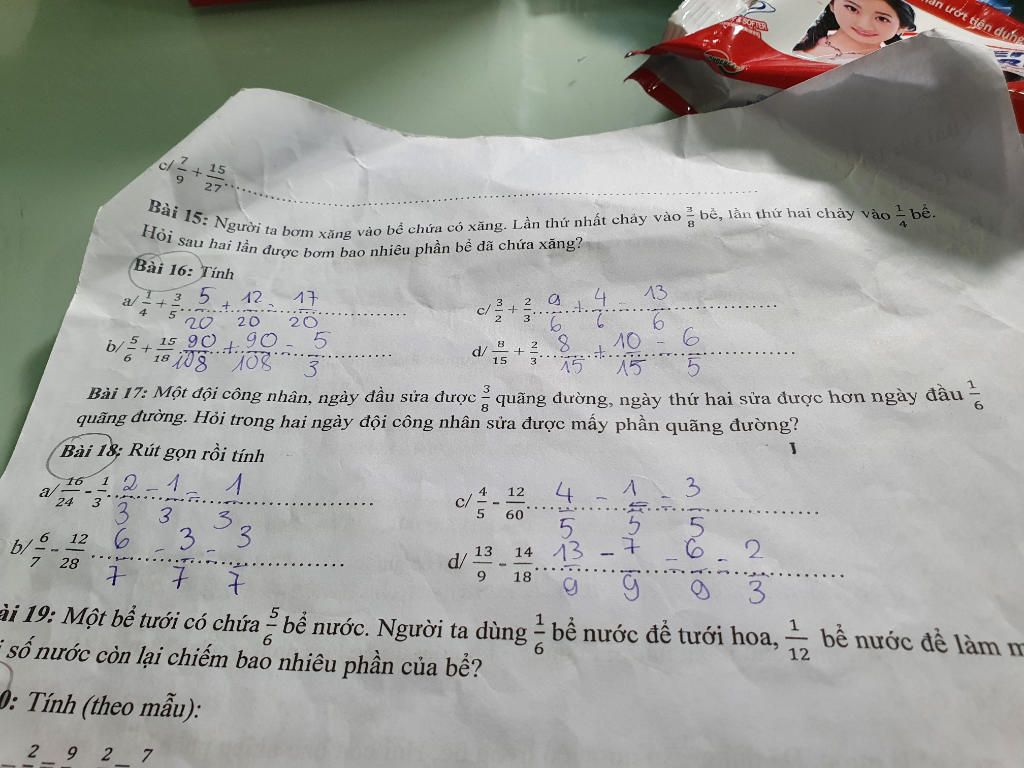 & SOFTER
ăn ướt tiện dụng
c/ 7/9 + 15/27
Bài 15: Người ta bơm xăng vào bể chứa có xăng. Lần thứ nhất chảy vào 3/8 bể, lần thứ hai chảy vào 1/4 bể.
Hỏi sau hai lần được bơm bao nhiêu phần bể đã chứa xăng?
Bài 16: Tính
a/ 1/4 + 3/5 5/20 + 12/20 = 17/20
c/ 3/2 + 2/3 9/6 + 4/6 = 13/6
b/ 5/6 + 15/18 90/108 + 90/108 = 5/3
d/ 8/15 + 2/3 8/15 + 10/15 = 6/5
Bài 17: Một đội công nhân, ngày đầu sửa được 3/8 quãng đường, ngày thứ hai sửa được hơn ngày đầu 1/6
quãng đường. Hỏi trong hai ngày đội công nhân sửa được mấy phần quãng đường?
Bài 18: Rút gọn rồi tính
a/ 16/24 - 1/3 2/3 - 1/3 = 1/3
c/ 4/5 - 12/60 4/5 - 1/5 = 3/5
b/ 6/7 - 12/28 6/7 - 3/7 = 3/7
d/ 13/9 - 14/18 13/9 - 7/9 = 6/9 = 2/3
ài 19: Một bể tưới có chứa 5/6 bể nước. Người ta dùng 1/6 bể nước để tưới hoa, 1/12 bể nước để làm m
i số nước còn lại chiếm bao nhiêu phần của bể?
0: Tính (theo mẫu):
2 9 2 7